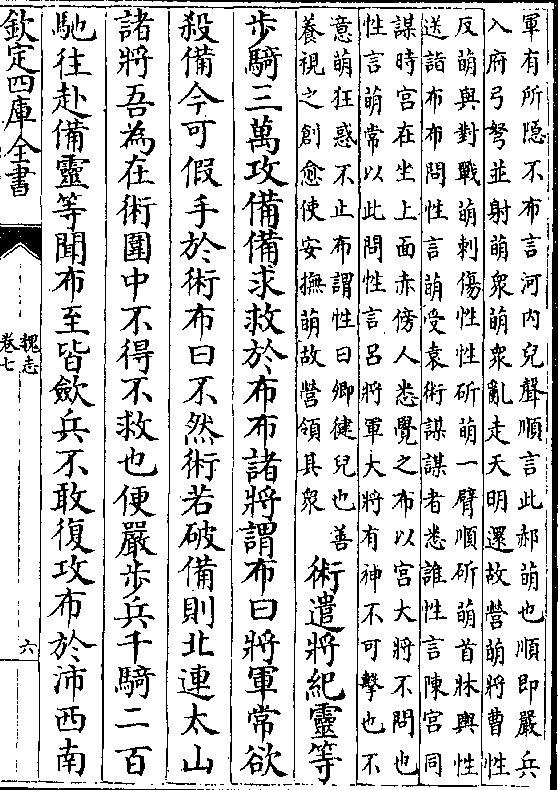 軍有所隱不布言河內兒聲順言此郝萌也順即嚴兵
入府弓弩並射萌衆萌衆亂走天明還故營萌將曹性
反萌與對戰萌刺傷性性斫萌一臂順斫萌首牀輿性
送詣布布問性言萌受袁術謀謀者悉誰性言陳宮同
謀時宮在坐上面赤傍人悉覺之布以宮大將不問也
性言萌常以此問性言呂將軍大將有神不可擊也不
意萌狂惑不止布謂性曰卿健兒也善
養視之創愈使安撫萌故營領其衆
術遣將紀靈等
步騎三萬攻備備求救於布布諸將謂布曰將軍常欲
殺備今可假手於術布曰不然術若破備則北連太山
諸將吾為在術圍中不得不救也便嚴步兵千騎二百
馳往赴備靈等聞布至皆斂兵不敢復攻布於沛西南
欽定四庫全書
魏志
卷七
六